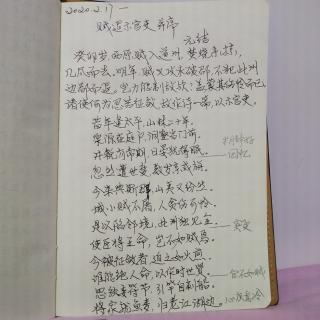 2020.2.17 一
贼退示官吏 并序
元结
癸卯岁,西原贼入道州,焚烧杀掠,
几尽而去。明年,贼又攻永破邵,不犯此州
边鄙而退。岂力能制敌欤?盖蒙其伤怜而已。
诸使何为忍苦征敛,故作诗一篇,以示官吏。
昔年逢太平,山林二十年。
泉源在庭户,洞壑当门前。
井税有常期,日晏犹得眠。
忽然遭世变,数岁亲戎旃。
回忆
今来典斯郡,山夷又纷然。
城小贼不屠,人贫伤可怜。
是以陷邻境,此州独见全。
使臣将王命,岂不如贼焉。
今被征敛者,迫之如火煎。
谁能绝人命,以作时世贤。
官不如贼
思欲委符节,引竿自刺船。
将家就鱼麦,归老江湖边。